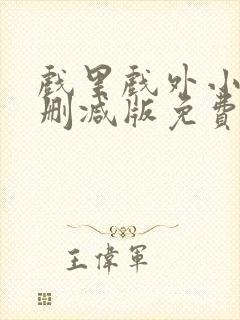 戲里戲外小
刪減版免費
王偉軍